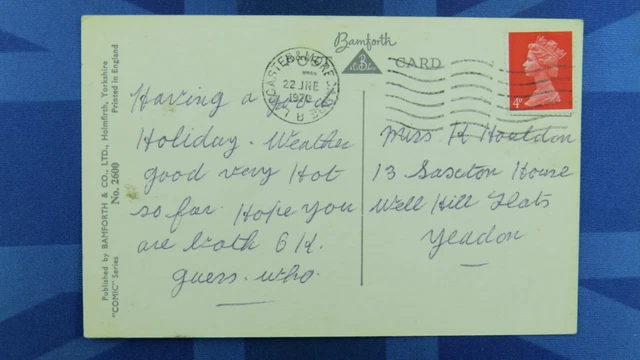 Bamforth
POST CARD
22 JNE
1970
4P
Published by BAMFORTH & CO., LTD., Holmfirth, Yorkshire
Printed in England
No. 2600
"COMIC" Series
Having a good
Holiday. Weather
good very Hot
so far Hope you
are both O K.
guess. who.
Miss K
13 Saxton House
Well Hill Flats
Yeadon